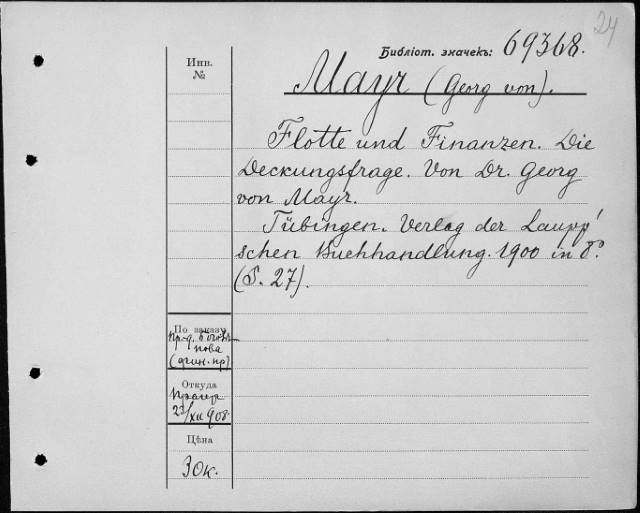 24
Библіот. значекъ: 69368.
Инв.
№
Mayr (Georg von).
Flotte und Finanzen. Die
Deckungsfrage. Von Dr. Georg
von Mayr.
Tübingen. Verlag der Laupp'
schen Buchhandlung. 1900 in 8°.
(S. 27).
По заказу
(фин. пр)
Откуда
23/XII 908
Цѣна
30к.